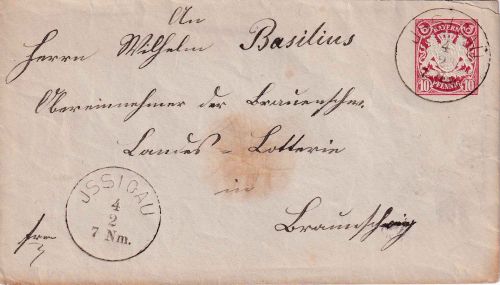 An
Herrn Wilhelm Basilius
Obereinnehmer der Braunschw.
Landes-Lotterie
in
Braunschweig
BAYERN
10 10
PFENNIG
USSIGAU
4
2
USSIGAU
4
2
7 Nm.